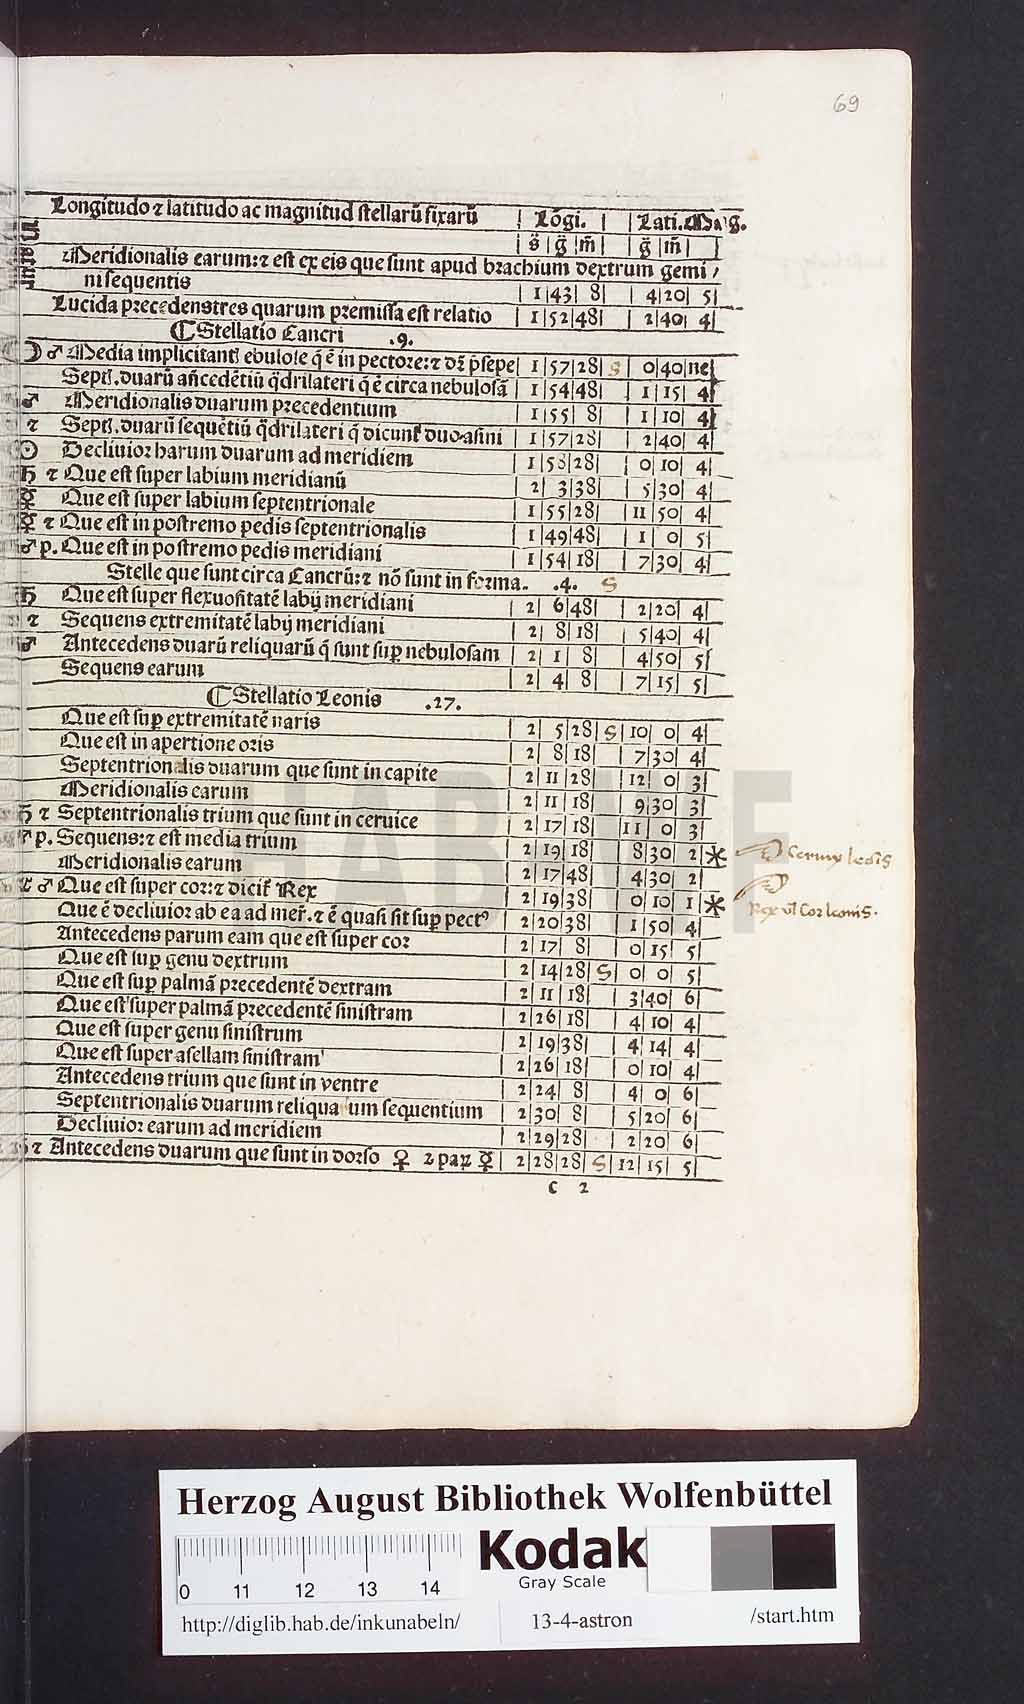 69
Longitudo ⁊ latitudo ac magnitud stellarū fixarū | Lōgi. | Lati. Mag.
Natur | s̄ | ḡ | m̄ | ḡ | m̄ |
Meridionalis earum:⁊ est ex eis que sunt apud brachium dextrum gemi
ni sequentis | 1|43| 8| | 4|20| 5|
Lucida precedens tres quarum premissa est relatio | 1|52|48| | 2|40| 4|
Stellatio Cancri .9.
☽ ♂ Media implicitant ebulose q̄ ē in pectore:⁊ dr̄ p̄sepe| 1|57|28| S | 0|40|ne|
Septē. duarū an̄cedētiū q̄drilateri q̄ ē circa nebulosā | 1|54|48| | 1|15| 4|
♂ Meridionalis duarum precedentium | 1|55| 8| | 1|10| 4|
⁊ Septē. duarū sequētiū q̄drilateri q̄ dicunt duo asini | 1|57|28| | 2|40| 4|
☉ Declivior harum duarum ad meridiem | 1|58|28| | 0|10| 4|
♄ ⁊ Que est super labium meridianū | 2| 3|38| | 5|30| 4|
☿ Que est super labium septentrionale | 1|55|28| |11|50| 4|
☿ ⁊ Que est in postremo pedis septentrionalis | 1|49|48| | 1| 0| 5|
♂ p. Que est in postremo pedis meridiani | 1|54|18| | 7|30| 4|
Stelle que sunt circa Cancrū:⁊ nō sunt in forma. .4. S
♄ Que est super flexuositatē labij meridiani | 2| 6|48| | 2|20| 4|
⁊ Sequens extremitatē labij meridiani | 2| 8|18| | 5|40| 4|
♂ Antecedens duarū reliquarū q̄ sunt sup nebulosam | 2| 1| 8| | 4|50| 5|
Sequens earum | 2| 4| 8| | 7|15| 5|
Stellatio Leonis .27.
Que est sup extremitatē naris | 2| 5|28| S |10| 0| 4|
Que est in apertione oris | 2| 8|18| | 7|30| 4|
Septentrionalis duarum que sunt in capite | 2|11|28| |12| 0| 3|
Meridionalis earum | 2|11|18| | 9|30| 3|
♄ ⁊ Septentrionalis trium que sunt in cervice | 2|17|18| |11| 0| 3|
♂ p. Sequens:⁊ est media trium | 2|19|18| | 8|30| 2|* Cervix leōis
Meridionalis earum | 2|17|48| | 4|30| 2|
⁊ ♂ Que est super cor:⁊ dicit̄ Rex | 2|19|38| | 0|10| 1|* Rex vl Cor leonis.
Que ē declivior ab ea ad mer̄.⁊ ē quasi sit sup pect⁹ | 2|20|38| | 1|50| 4|
Antecedens parum eam que est super cor | 2|17| 8| | 0|15| 5|
Que est sup genu dextrum | 2|14|28| S | 0| 0| 5|
Que est sup palmā precedentē dextram | 2|11|18| | 3|40| 6|
Que est super palmā precedentē sinistram | 2|26|18| | 4|10| 4|
Que est super genu sinistrum | 2|19|38| | 4|14| 4|
Que est super asellam sinistram | 2|26|18| | 0|10| 4|
Antecedens trium que sunt in ventre | 2|24| 8| | 4| 0| 6|
Septentrionalis duarum reliqua um sequentium | 2|30| 8| | 5|20| 6|
Declivior earum ad meridiem | 2|29|28| | 2|20| 6|
⁊ Antecedens duarum que sunt in dorso ♀ ⁊ par ☿ | 2|28|28| S |12|15| 5|
c 2
HAB WF
Herzog August Bibliothek Wolfenbüttel
Kodak
Gray Scale
0 11 12 13 14
http://diglib.hab.de/inkunabeln/ 13-4-astron /start.htm